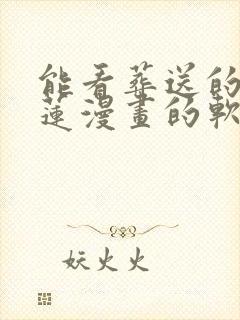 能看葬送的芙
蓮漫畫的軟
妖火火